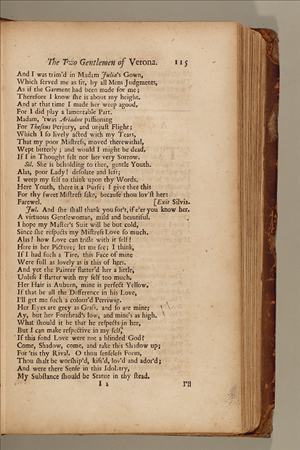 The Two Gentlemen of Verona. 115
And I was trim'd in Madam Julia's Gown,
Which served me as fit, by all Mens Judgments,
As if the Garment had been made for me;
Therefore I know she is about my height.
And at that time I made her weep agood,
For I did play a lamentable Part.
Madam, 'twas Ariadne passioning
For Theseus Perjury, and unjust Flight;
Which I so lively acted with my Tears,
That my poor Mistress, moved therewithal,
Wept bitterly; and would I might be dead,
If I in Thought felt not her very Sorrow.
Sil. She is beholding to thee, gentle Youth.
Alas, poor Lady! desolate and left;
I weep my self to think upon thy Words.
Here Youth, there is a Purse; I give thee this
For thy sweet Mistress sake, because thou lov'st her:
Farewel. [Exit Silvia.
Jul. And she shall thank you for't, if e'er you know her.
A virtuous Gentlewoman, mild and beautiful.
I hope my Master's Suit will be but cold,
Since she respects my Mistress Love so much.
Alas! how Love can trifle with it self!
Here is her Picture; let me see; I think,
If I had such a Tire, this Face of mine
Were full as lovely as is this of hers.
And yet the Painter flatter'd her a little,
Unless I flatter with my self too much.
Her Hair is Auburn, mine is perfect Yellow.
If that be all the Difference in his Love,
I'll get me such a colour'd Perriwig.
Her Eyes are grey as Grass, and so are mine;
Ay, but her Forehead's low, and mine's as high.
What should it be that he respects in her,
But I can make respective in my self,
If this fond Love were not a blinded God?
Come, Shadow, come, and take this Shadow up;
For 'tis thy Rival. O thou senseless Form,
Thou shalt be worship'd, kiss'd, lov'd and ador'd;
And were there Sense in this Idolatry,
My Substance should be Statue in thy stead.
I 2 I'll